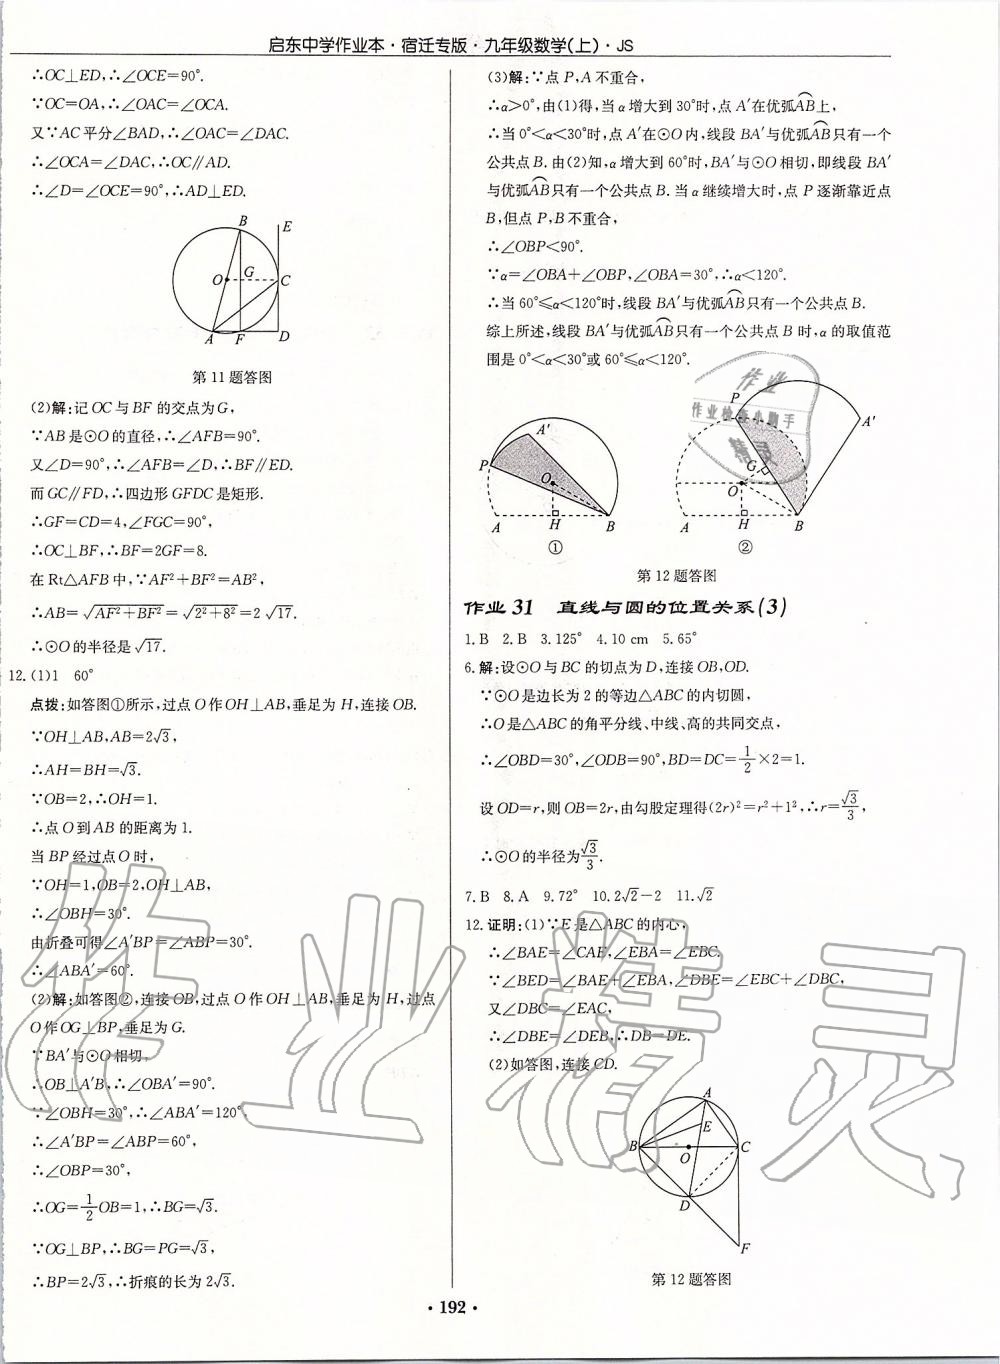 启东中学作业本·宿迁专版·九年级数学(上)·JS
∴OC⊥ED,∴∠OCE=90°.
∵OC=OA,∴∠OAC=∠OCA.
又∵AC平分∠BAD,∴∠OAC=∠DAC.
∴∠OCA=∠DAC,∴OC∥AD.
∴∠D=∠OCE=90°,∴AD⊥ED.
B E
O G C
A F D
第11题答图
(2)解:记OC与BF的交点为G,
∵AB是⊙O的直径,∴∠AFB=90°.
又∠D=90°,∴∠AFB=∠D,∴BF∥ED.
而GC∥FD,∴四边形GFDC是矩形.
∴GF=CD=4,∠FGC=90°,
∴OC⊥BF,∴BF=2GF=8.
在Rt△AFB中,∵AF²+BF²=AB²,
∴AB=√(AF²+BF²)=√(2²+8²)=2√17.
∴⊙O的半径是√17.
12.(1)1 60°
点拨:如答图①所示,过点O作OH⊥AB,垂足为H,连接OB.
∵OH⊥AB,AB=2√3,
∴AH=BH=√3.
∵OB=2,∴OH=1.
∴点O到AB的距离为1.
当BP经过点O时,
∵OH=1,OB=2,OH⊥AB,
∴∠OBH=30°.
由折叠可得∠A′BP=∠ABP=30°.
∴∠ABA′=60°.
(2)解:如答图②,连接OB,过点O作OH⊥AB,垂足为H,过点
O作OG⊥BP,垂足为G.
∵BA′与⊙O相切,
∴OB⊥A′B,∴∠OBA′=90°.
∵∠OBH=30°,∴∠ABA′=120°.
∴∠A′BP=∠ABP=60°,
∴∠OBP=30°,
∴OG=1/2OB=1,∴BG=√3.
∵OG⊥BP,∴BG=PG=√3,
∴BP=2√3,∴折痕的长为2√3.
(3)解:∵点P,A不重合,
∴α>0°,由(1)得,当α增大到30°时,点A′在优弧AB上,
∴当0°<α<30°时,点A′在⊙O内,线段BA′与优弧AB只有一个
公共点B.由(2)知,α增大到60°时,BA′与⊙O相切,即线段BA′
与优弧AB只有一个公共点B.当α继续增大时,点P逐渐靠近点
B,但点P,B不重合,
∴∠OBP<90°.
∵α=∠OBA+∠OBP,∠OBA=30°,∴α<120°.
∴当60°≤α<120°时,线段BA′与优弧AB只有一个公共点B.
综上所述,线段BA′与优弧AB只有一个公共点B时,α的取值范
围是0°<α<30°或60°≤α<120°.
A′ P O A H B ①
P A′ G O A H B ②
第12题答图
作业31 直线与圆的位置关系(3)
1.B 2.B 3.125° 4.10 cm 5.65°
6.解:设⊙O与BC的切点为D,连接OB,OD.
∵⊙O是边长为2的等边△ABC的内切圆,
∴O是△ABC的角平分线、中线、高的共同交点,
∴∠OBD=30°,∠ODB=90°,BD=DC=1/2×2=1.
设OD=r,则OB=2r,由勾股定理得(2r)²=r²+1²,∴r=√3/3,
∴⊙O的半径为√3/3.
7.B 8.A 9.72° 10.2√2-2 11.√2
12.证明:(1)∵E是△ABC的内心,
∴∠BAE=∠CAE,∠EBA=∠EBC.
∵∠BED=∠BAE+∠EBA,∠DBE=∠EBC+∠DBC,
又∠DBC=∠EAC,
∴∠DBE=∠DEB,∴DB=DE.
(2)如答图,连接CD.
A
E
B O C
D
F
第12题答图
·192·
作业精灵
作业
作业检查小助手
精灵